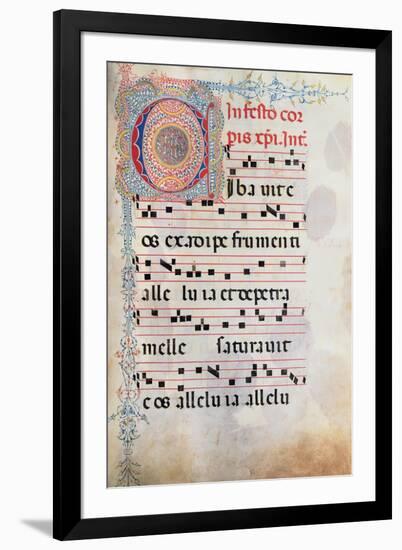 In festo cor
pis xp̄i. Int̄.
Cibavit e
os ex adipe frumenti
alle lu ia et de petra
melle saturavit
e os allelu ia allelu